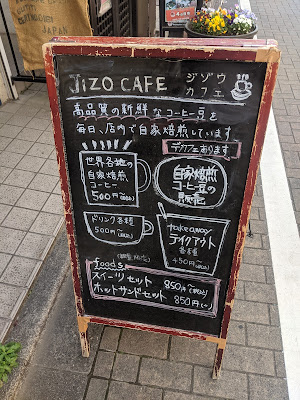 JiZO CAFE ジゾウ
カフェ
高品質の新鮮なコーヒー豆を
毎日、店内で自家焙煎しています
デカフェあります
世界各地の
自家焙煎
コーヒー
500円〜
自家焙煎
コーヒー豆の
販売
ドリンク各種
500円〜
takeaway
テイクアウト
各種
450円〜
foods
スイーツセット 850円〜
ホットサンドセット 850円
JAPAN